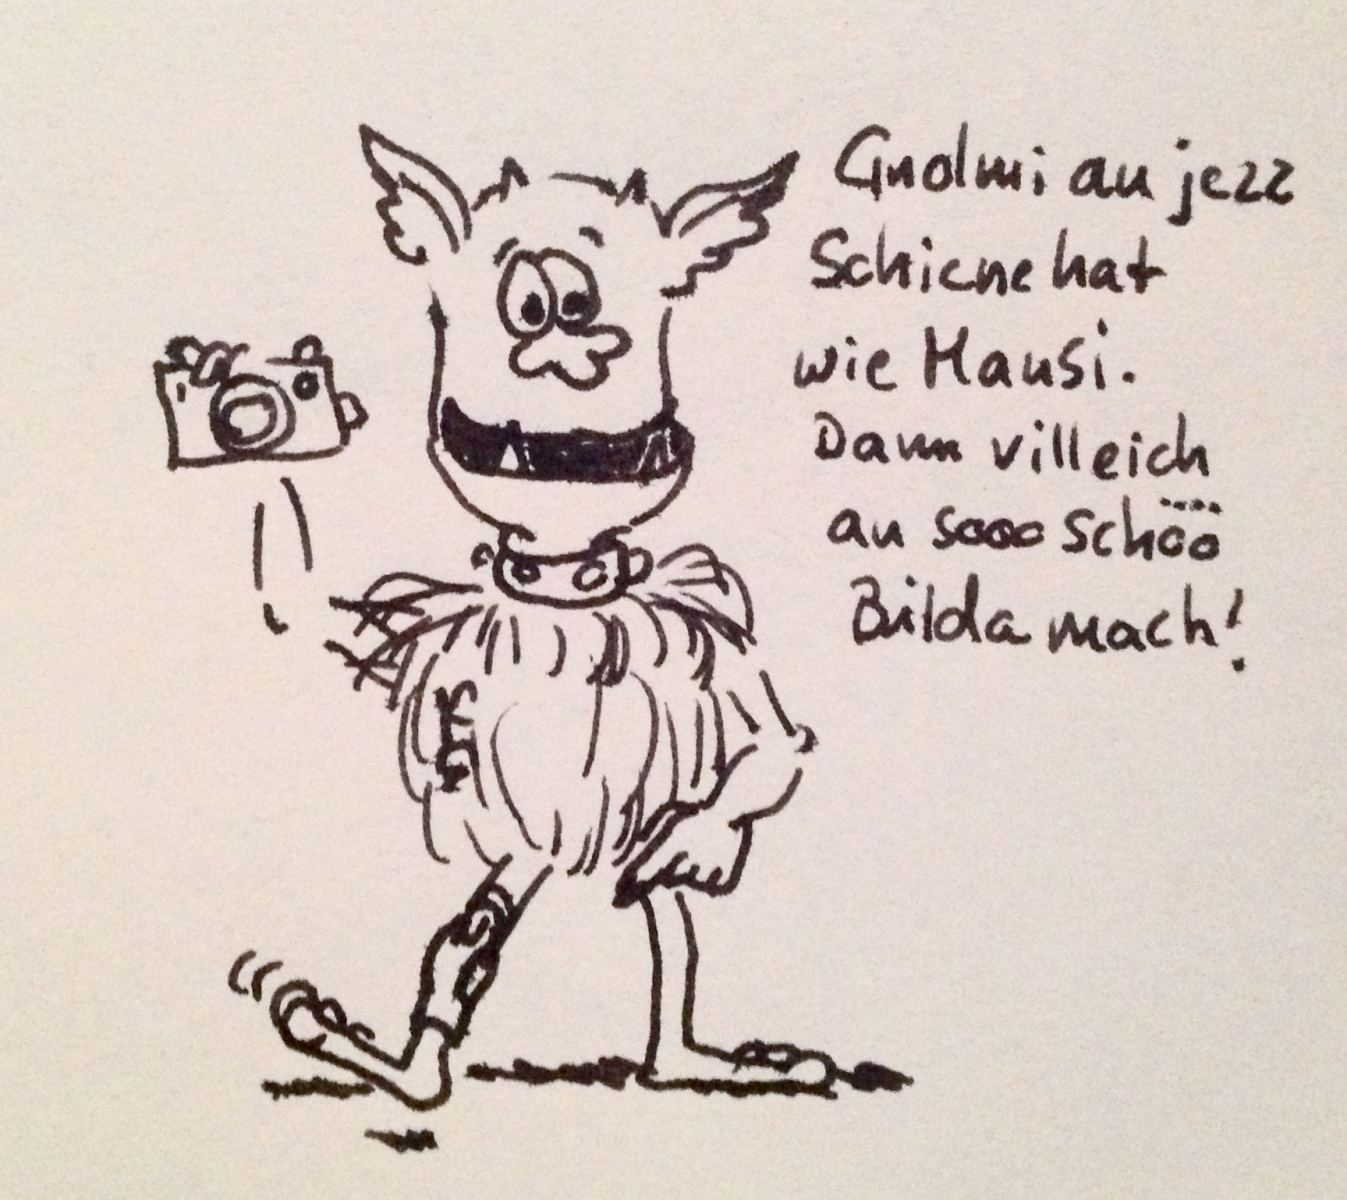 Gnolmi au jezz
Schiene hat
wie Hausi.
Dann villeich
au sooo schöö
Bilda mach!